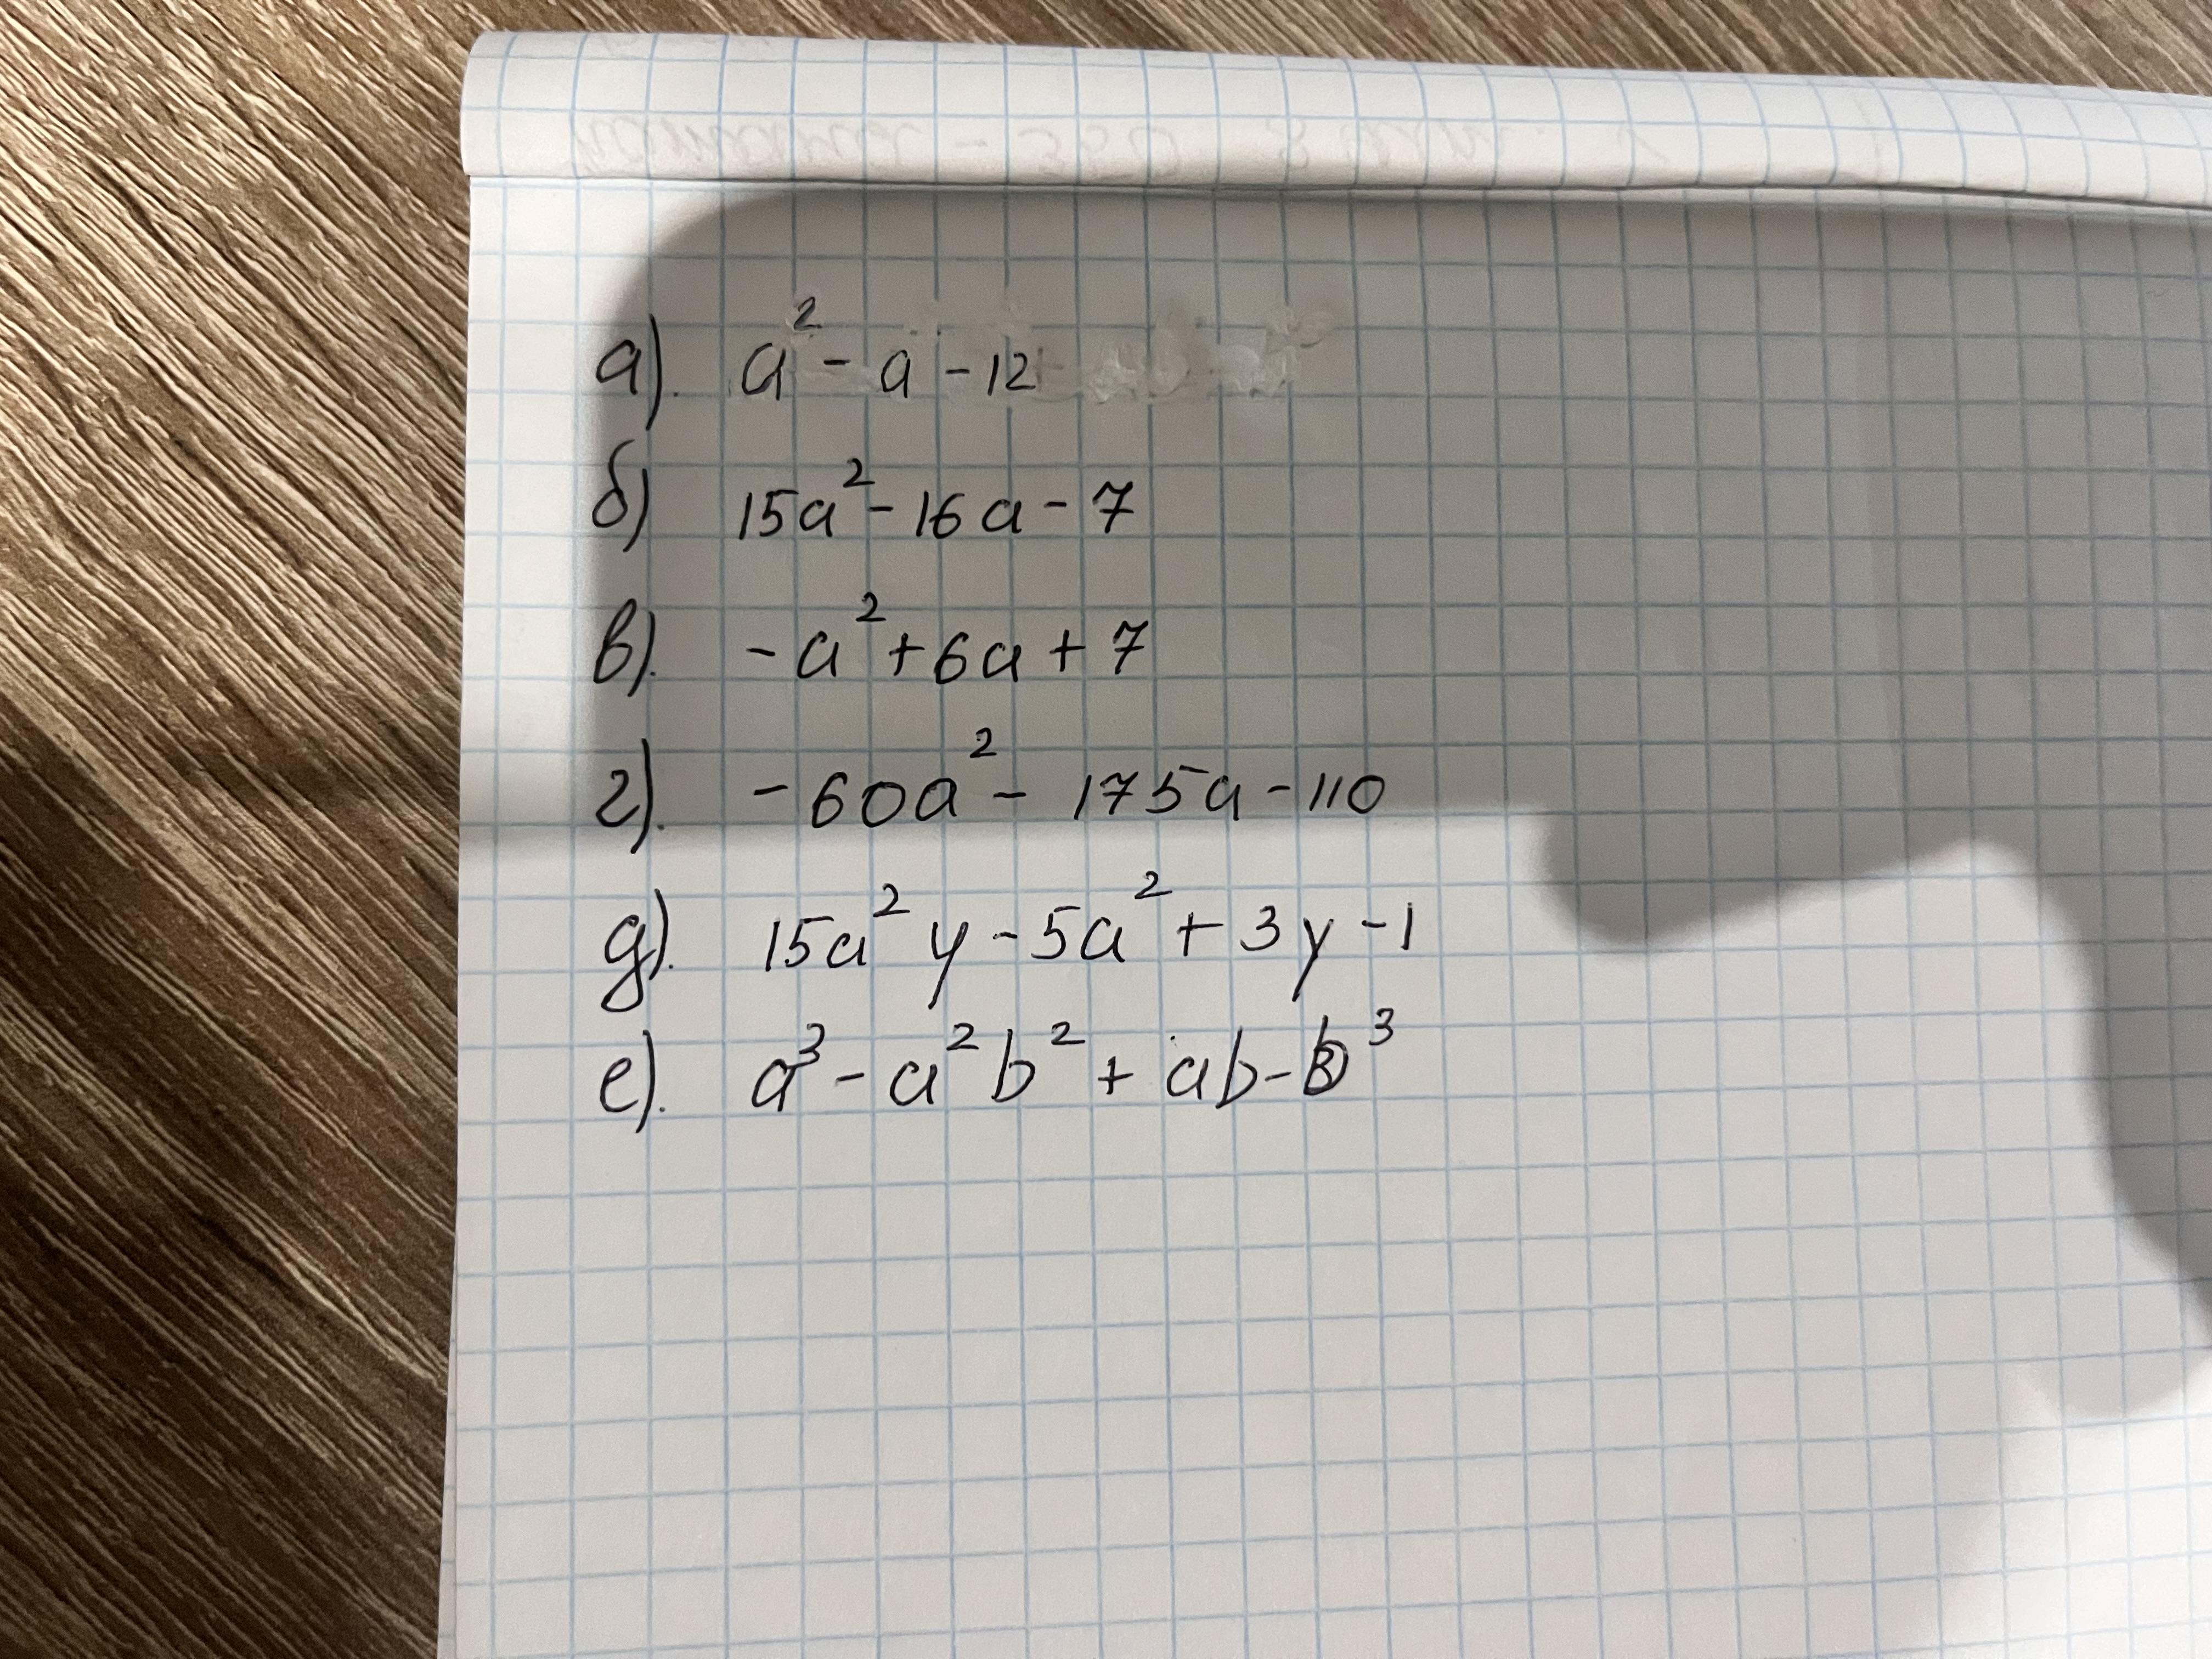 а). a² - a - 12
б) 15a² - 16a - 7
в). -a² + 6a + 7
г). -60a² - 175a - 110
д). 15a²y - 5a² + 3y - 1
е). a³ - a²b² + ab - b³